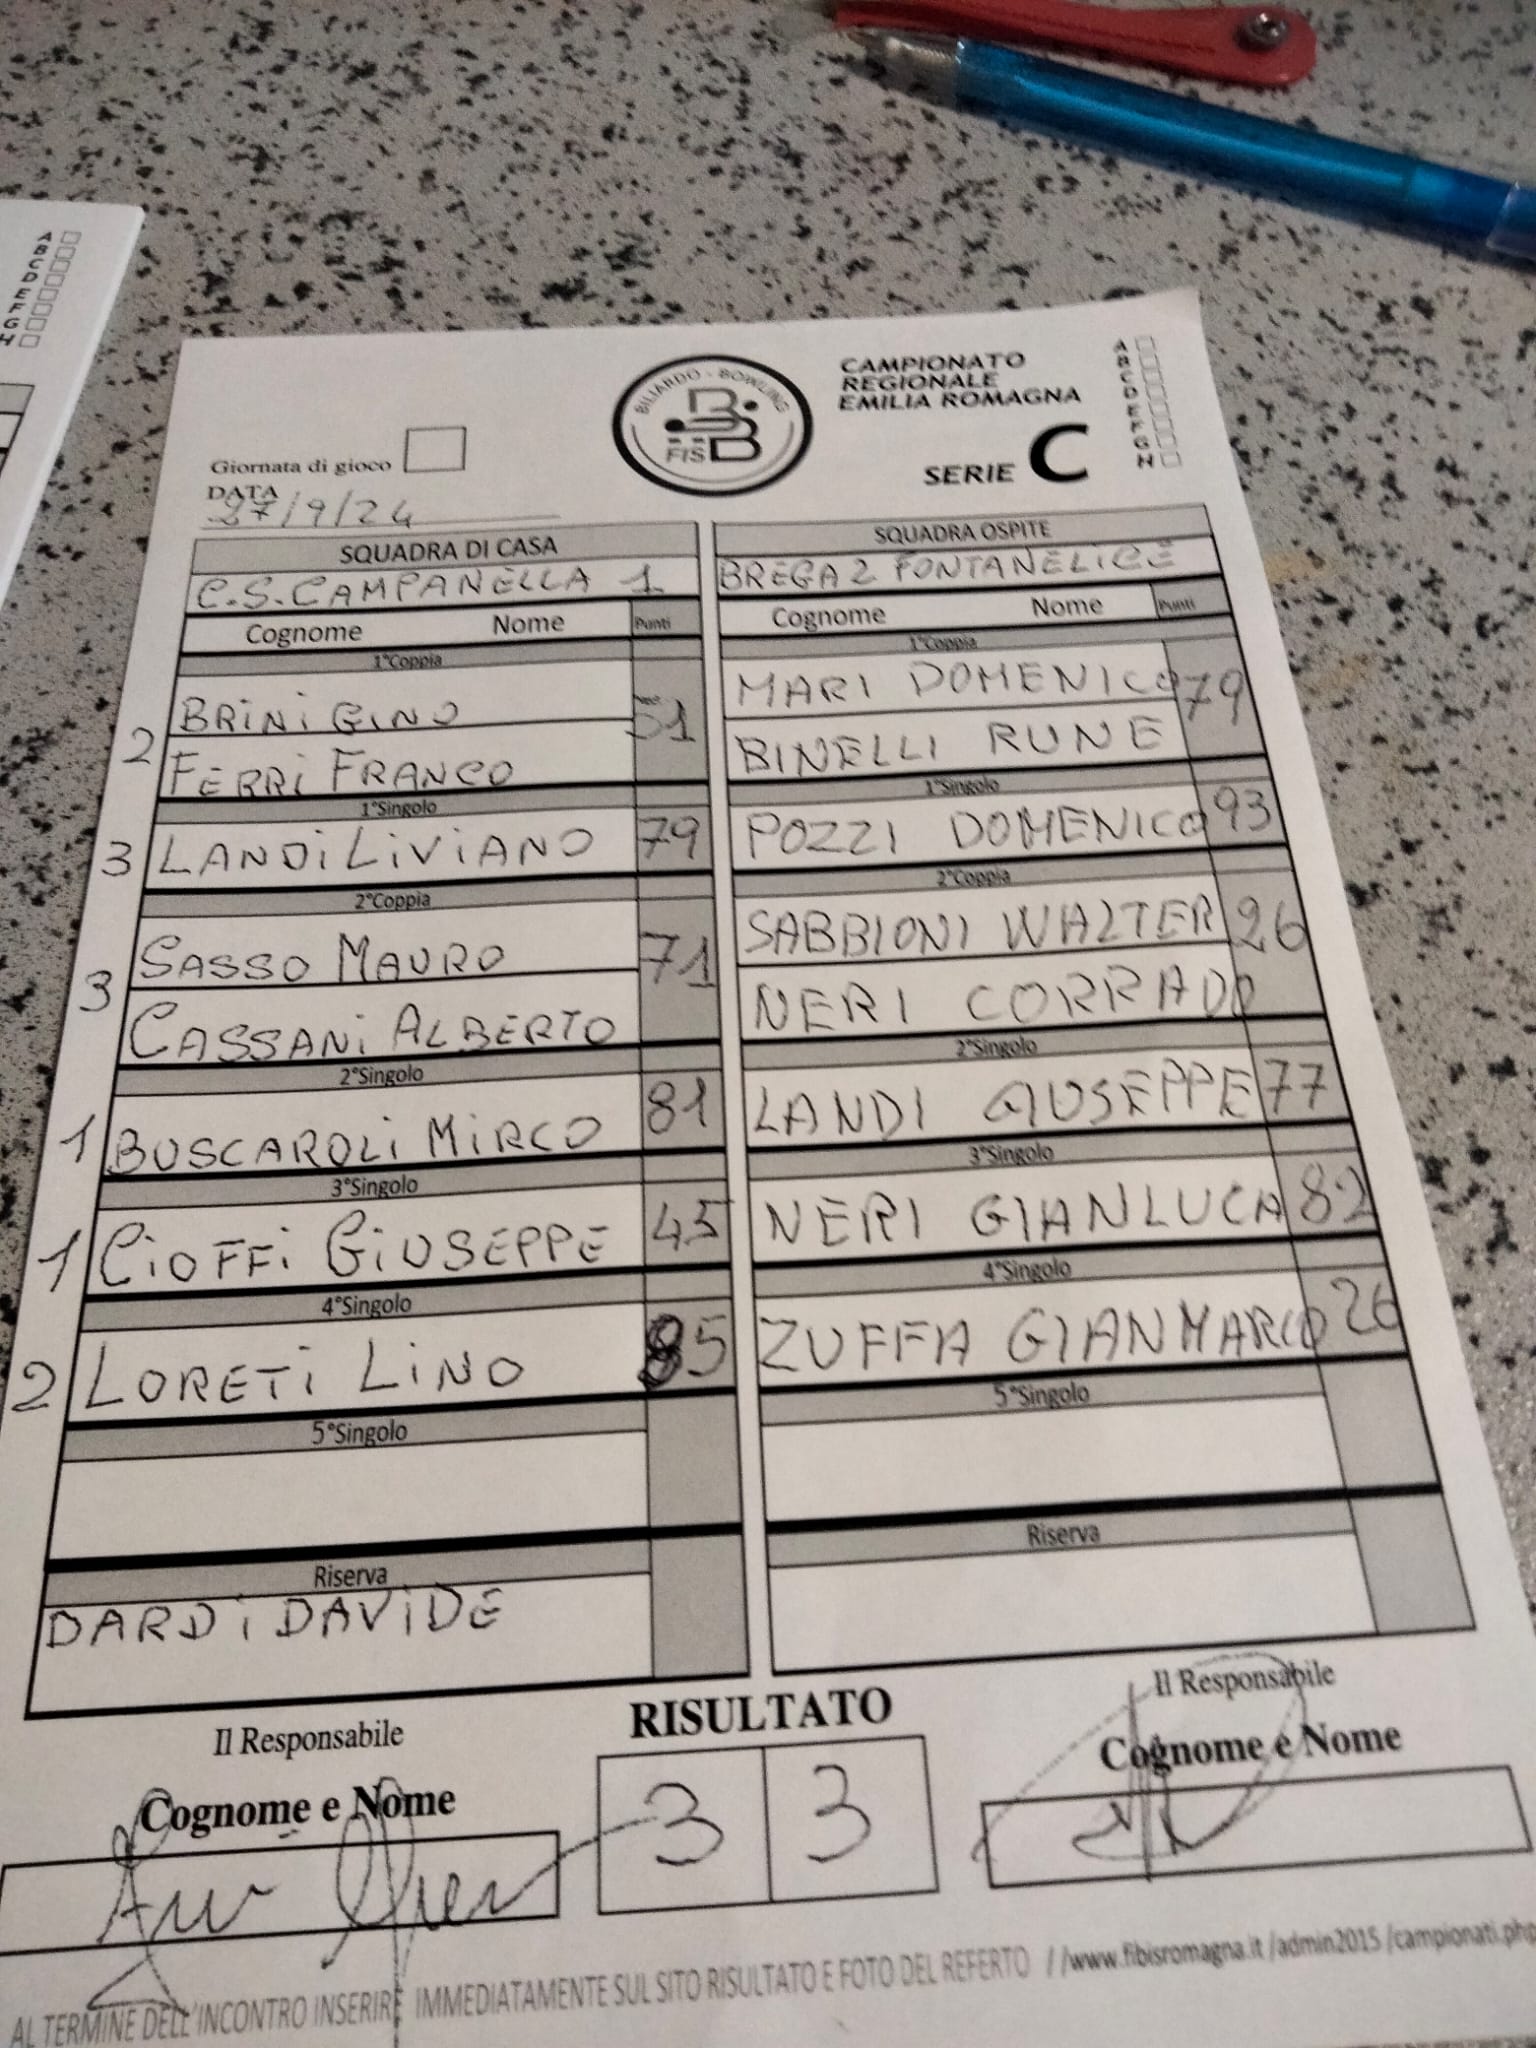 A
B
C
D
E
F
G
H
BILIARDO - BOWLING
FISBB
CAMPIONATO
REGIONALE
EMILIA ROMAGNA
SERIE C
A
B
C
D
E
F
G
H
Giornata di gioco
DATA
27/9/24
SQUADRA DI CASA
C.S. CAMPANELLA 1
Cognome Nome Punti
1°Coppia
BRINI GINO 51
2
FERRI FRANCO
1°Singolo
3 LANDI LIVIANO 79
2°Coppia
SASSO MAURO 71
3
CASSANI ALBERTO
2°Singolo
1 BUSCAROLI MIRCO 81
3°Singolo
1 CIOFFI GIUSEPPE 45
4°Singolo
2 LORETI LINO 85
5°Singolo
Riserva
DARDI DAVIDE
SQUADRA OSPITE
BREGA 2 FONTANELICE
Cognome Nome Punti
1°Coppia
MARI DOMENICO 79
BINELLI RUNE
1°Singolo
POZZI DOMENICO 93
2°Coppia
SABBIONI WALTER 26
NERI CORRADO
2°Singolo
LANDI GIUSEPPE 77
3°Singolo
NERI GIANLUCA 82
4°Singolo
ZUFFA GIANMARCO 26
5°Singolo
Riserva
Il Responsabile
Cognome e Nome
RISULTATO
3 3
Il Responsabile
Cognome e Nome
AL TERMINE DELL'INCONTRO INSERIRE IMMEDIATAMENTE SUL SITO RISULTATO E FOTO DEL REFERTO //www.fibisromagna.it /admin2015 /campionati.php